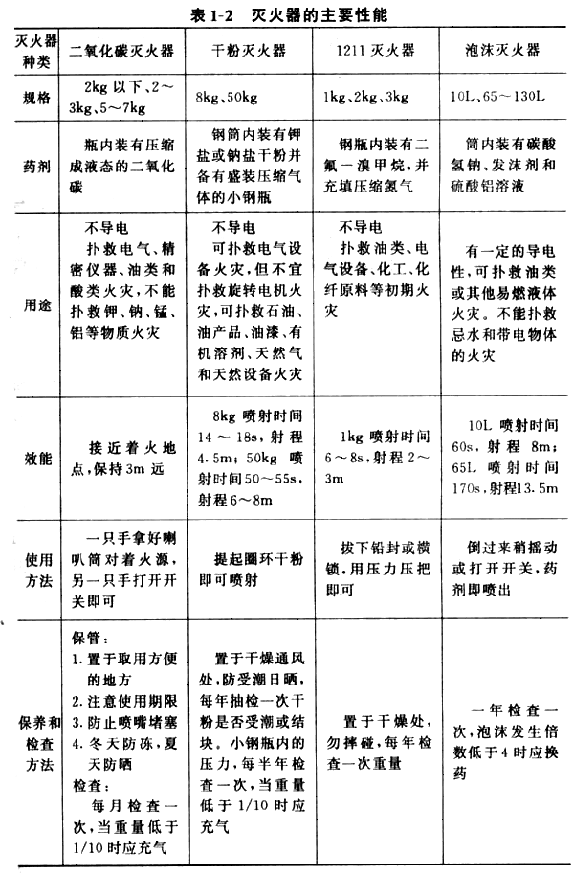 表1-2 灭火器的主要性能
灭火器
种类
二氧化碳灭火器
干粉灭火器
1211灭火器
泡沫灭火器
规格
2kg以下、2～
3kg、5～7kg
8kg、50kg
1kg、2kg、3kg
10L、65～130L
药剂
瓶内装有压缩
成液态的二氧化
碳
钢筒内装有钾
盐或钠盐干粉并
备有盛装压缩气
体的小钢瓶
钢瓶内装有二
氟一溴甲烷,并
充填压缩氮气
筒内装有碳酸
氢钠、发沫剂和
硫酸铝溶液
用途
不导电
扑救电气、精
密仪器、油类和
酸类火灾,不能
扑救钾、钠、锰、
铝等物质火灾
不导电
可扑救电气设
备火灾,但不宜
扑救旋转电机火
灾,可扑救石油、
油产品、油漆、有
机溶剂、天然气
和天然设备火灾
不导电
扑救油类、电
气设备、化工、化
纤原料等初期火
灾
有一定的导电
性,可扑救油类
或其他易燃液体
火灾。不能扑救
忌水和带电物体
的火灾
效能
接近着火地
点,保持3m远
8kg喷射时间
14～18s,射程
4.5m;50kg喷
射时间50～55s,
射程6～8m
1kg喷射时间
6～8s,射程2～
3m
10L喷射时间
60s,射程8m;
65L喷射时间
170s,射程13.5m
使用
方法
一只手拿好喇
叭筒对着火源,
另一只手打开开
关即可
提起圈环干粉
即可喷射
拔下铅封或横
锁,用压力压把
即可
倒过来稍摇动
或打开开关,药
剂即喷出
保养和
检查
方法
保管:
1.置于取用方便
的地方
2.注意使用期限
3.防止喷嘴堵塞
4.冬天防冻,夏
天防晒
检查:
每月检查一
次,当重量低于
1/10时应充气
置于干燥通风
处,防受潮日晒,
每年抽检一次干
粉是否受潮或结
块。小钢瓶内的
压力,每半年检
查一次,当重量
低于1/10时应
充气
置于干燥处,
勿摔碰,每年检
查一次重量
一年检查一
次,泡沫发生倍
数低于4时应换
药